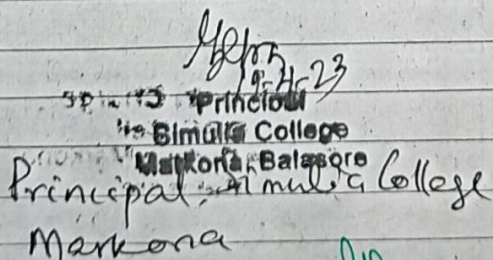 9-4-23
Principal
Simulia College
Markona, Balasore
Principal, Simulia College
Markona